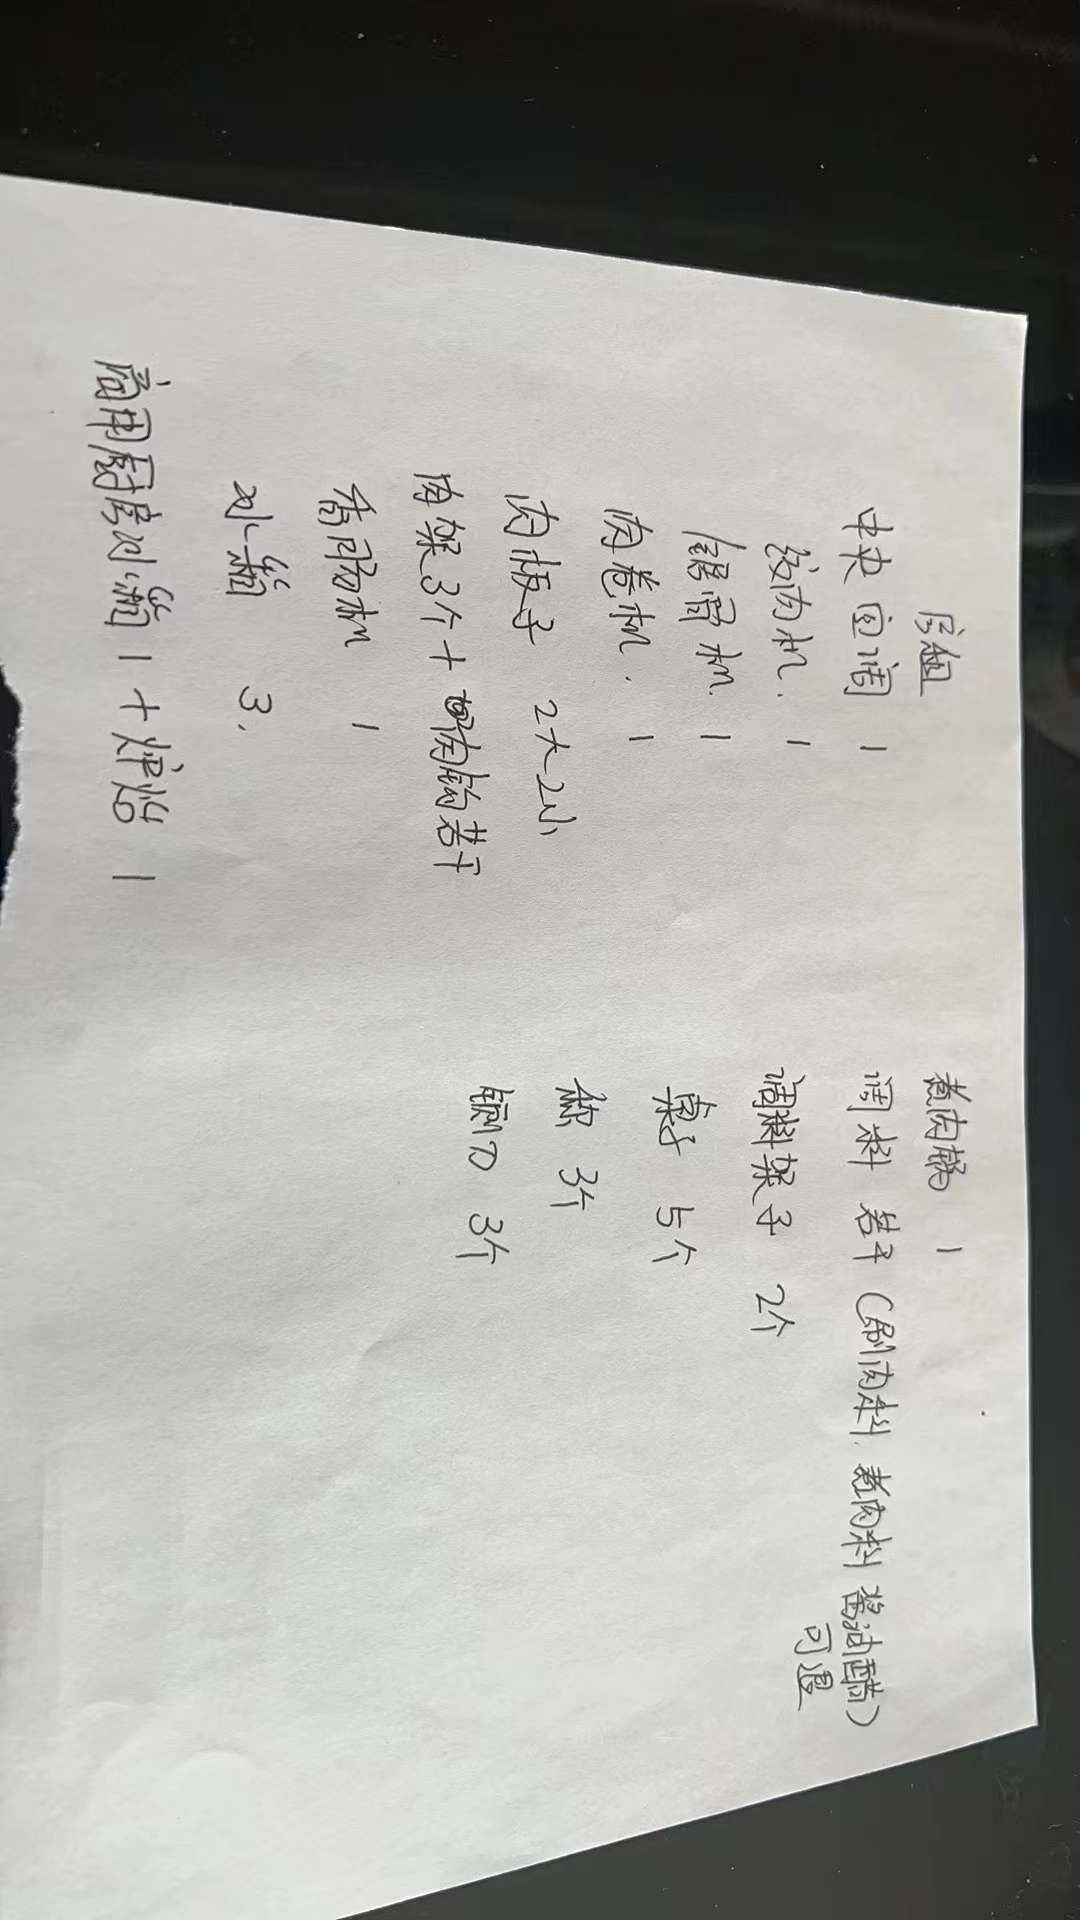 房租
中央空调 1
绞肉机. 1
锯骨机 1
肉卷机. 1
肉板子 2大2小
肉架3个+肉钩若干
香肠机 1
冰箱 3.
商用厨房冰箱 1 + 炉灶 1
煮肉锅 1
调料 若干 (刷肉料. 煮肉料 酱油醋)
可退
调料架子 2个
桌子 5个
称 3个
3个